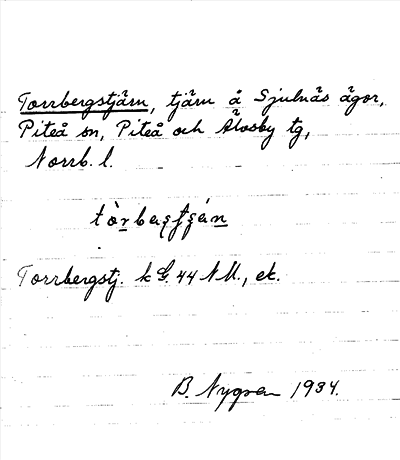 Torrbergstjärn, tjärn å Sjulnäs ägor,
Piteå sn, Piteå och Älvsby tg,
Norrb. l.
Torrbergstj. k G. 44 NM., ek.
B. Nygren 1934.